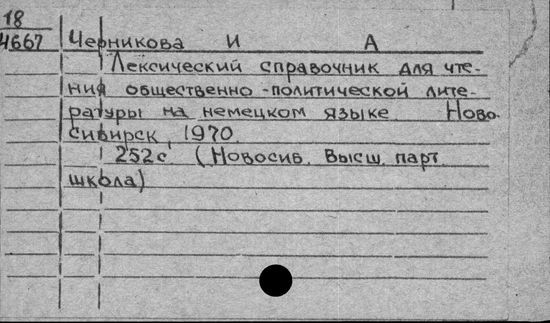 18
4667 Черникова И А
Лексический справочник для чте-
ния общественно-политической лите-
ратуры на немецком языке Ново-
сибирск, 1970
252с (Новосив. Высш. парт.
школа)